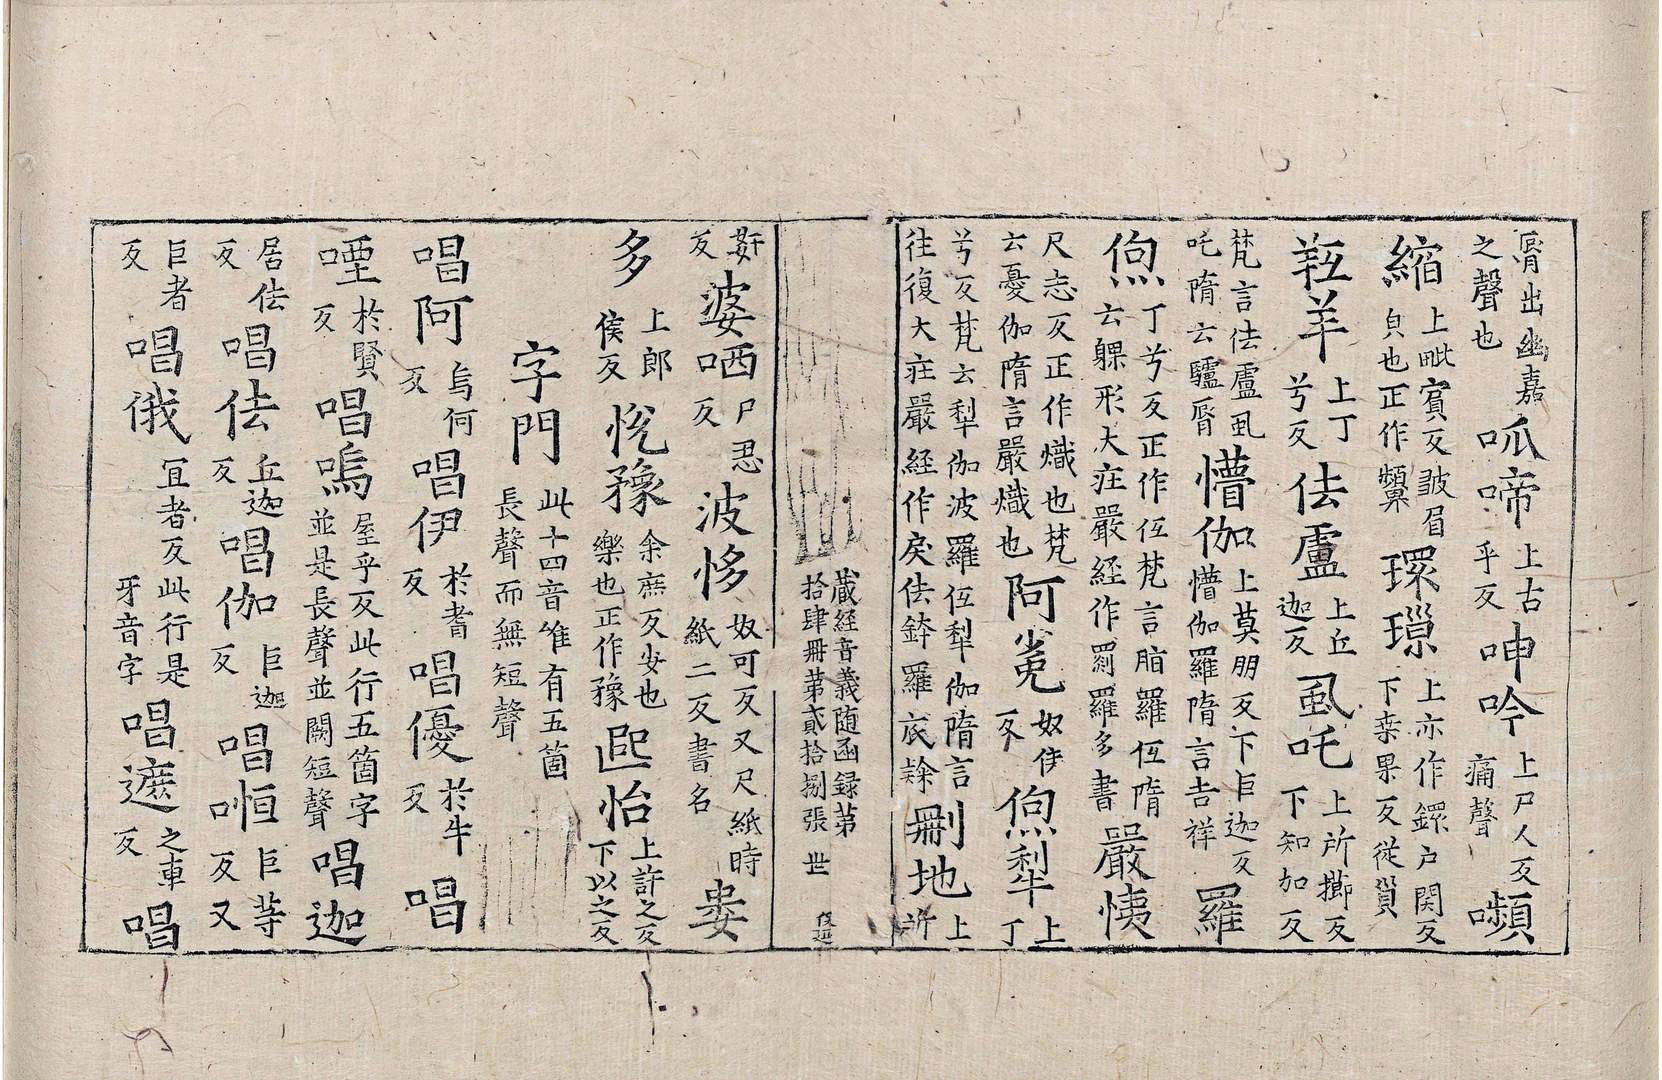 屑出幽嘉之聲也呱啼上古乎反呻吟上尸人反痛聲嚬
縮上毗賓反皺眉皃也正作顰環瓈上亦作鐶戶関反下桒果反從貨
羖羊上丁兮反佉盧上丘迦反虱吒上所擳反下知加反
梵言佉盧虱吒隋云驢脣懵伽上莫朋反下巨迦反懵伽羅隋言吉祥羅
㐹丁兮反正作㐌梵言脂羅㐌隋云躶形大疘嚴經作罽羅多書嚴㤥
尺志反正作熾也梵云憂伽隋言嚴熾也阿㝹奴侯反㐹犁上丁
兮反梵云犁伽波羅㐌犁伽隋言往復大疘嚴經作戾佉鉢羅底隸刪地上所
藏經音義随函録第拾肆冊第貳拾捌張 世
姧反婆哂尸忍反波㥋奴可反又尺紙時紙二反書名婁
多上郎侯反悅豫余庶反安也樂也正作豫𨑨怡上許之反下以之反
字門此十四音唯有五箇長聲而無短聲
唱阿烏何反唱伊於耆反唱優於牛反唱
㖶於賢反唱嗚屋乎反此行五箇字並是長聲並闕短聲唱迦
居佉反唱佉丘迦反唱伽巨迦反唱恒巨等反又
巨者反唱俄冝者反此行是牙音字唱遮之車反唱